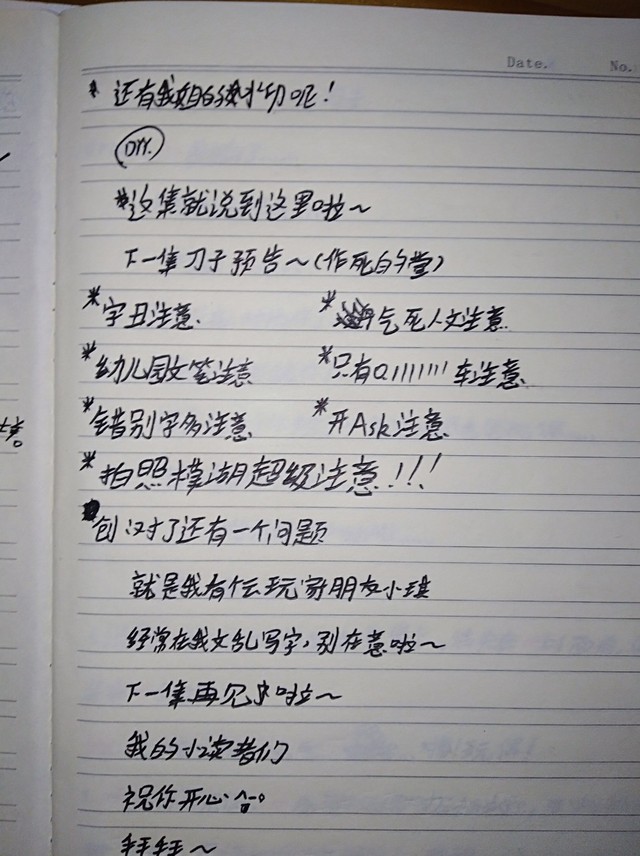 Date. No.
* 还有我姐的续水叻呢！
DYY.
*这集就说到这里啦～
下一集刀子预告～(作死的堂)
*字丑注意. *气死人文注意
*幼儿园文笔注意 *只有Q1111111车注意
*错别字多注意 *开Ask注意
*拍照模湖超级注意!!!
对了还有一个问题
就是我有个玩家朋友小琪
经常在我文乱写字,别在意啦～
下一集再见啦～
我的小读者们
祝你开心
拜拜～